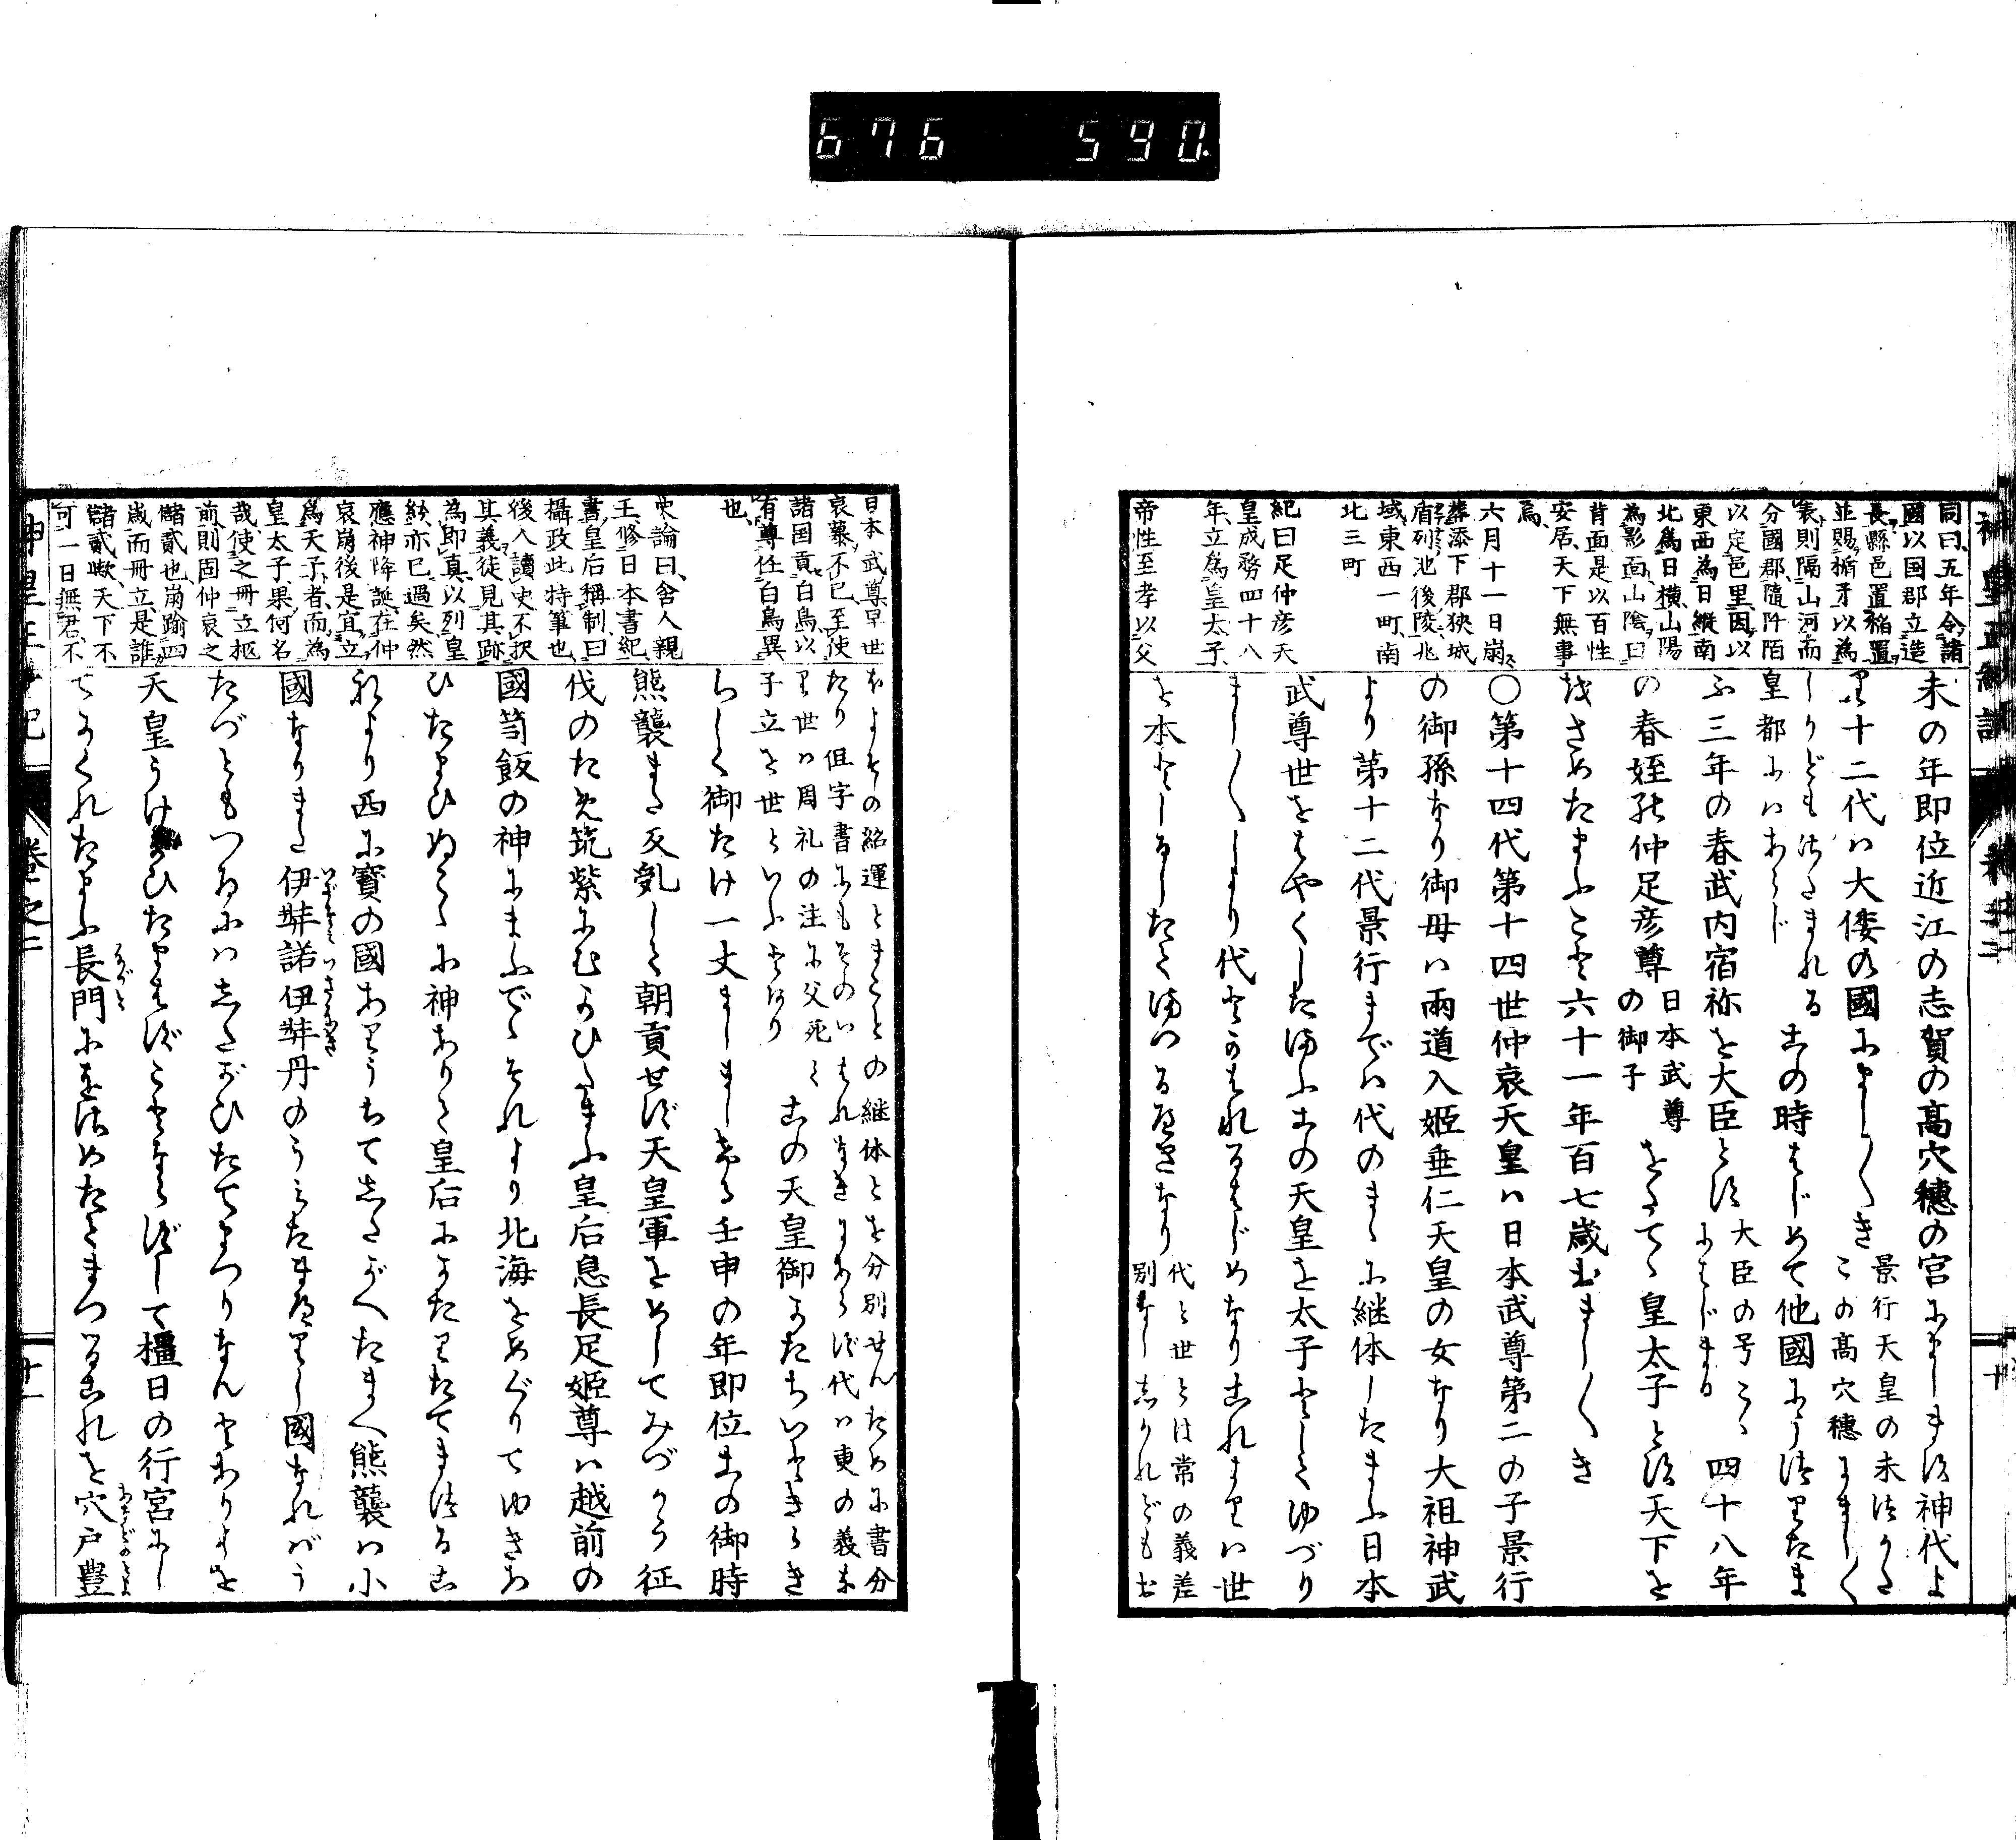 676 590.
同曰、五年令諸
國以国郡立造
長縣邑置稲置
並賜楯矛以為
表則隔山河而
分國郡随阡陌
以定邑里因以
東西為日縦南
北為日横山陽
為影面山陰曰
背面是以百性
安居天下無事
焉、
六月十一日崩
葬添下郡狭城
盾列池後陵兆
域東西一町南
北三町
紀曰足仲彦天
皇成務四十八
年立為皇太子
帝性至孝以父
未の年即位近江の志賀の高穴穂の宮にまします神代よ
り十二代ハ大倭の國にましましき
景行天皇の末つかた
この高穴穂にましく
しかども
皇都にハあらじ
この時はじめて他國にうつりたま
ふ三年の春武内宿祢を大臣とす
大臣の号こゝ
にはじまる
四十八年
の春姪の仲足彦尊
日本武尊
の御子
をたてゝ皇太子とす天下を
をさめたまふこと六十一年百七歳おましくき
〇第十四代第十四世仲哀天皇ハ日本武尊第二の子景行
の御孫なり御母ハ兩道入姫垂仁天皇の女なり大祖神武
より第十二代景行までハ代のまゝに継体したまふ日本
武尊世をはやくしたまふこの天皇を太子としてゆづり
ましくしより代とかはれるはじめなりこれよりハ世
を本としるしたてまつるべきなり
代と世とは常の義差
別なししかれども
日本武尊早世
哀慕不已至使
諸国貢白鳥以
有尊化白鳥異
也、
史論曰舎人親
王修日本書紀
書皇后稱制曰
攝政此特筆也
後人讀史不択
其義徒見其跡
為即真以列皇
統亦已過矣然
應神降誕在仲
哀崩後是宜立
為天子者而為
皇太子果何名
哉使之冊立柩
前則固仲哀之
儲貳也崩踰四
歳而冊立是誰
儲貳歟天下不
可一日無君不
およその紹運とまことの継体とを分別せんために書分
たり但字書にもそのいはれなきにあらず代ハ更の義
世ハ周礼の注に父死て
子立を世といふとあり
この天皇御かたちいときら
らしく御たけ一丈ましましける壬申の年即位この御時
熊襲また反乱して朝貢せず天皇軍をめしてみづから征
伐のため筑紫にむかひたまふ皇后息長足姫尊ハ越前の
國笥飯の神にまふでゝそれより北海をめぐりてゆきあ
ひたまひぬこゝに神ありて皇后にかたりたてまつるこ
れより西に寶の國ありうちてしたがへたまへ熊襲ハ小
國なりまた伊弉諾伊弉冉のうみたまへりし國なれバう
たづともつひにハしたがひたてまつりなんとありしを
天皇うけがひたまはずことならずして橿日の行宮にし
てかくれたまふ長門にをさめたてまつるこれを穴戸豊
巻之二
十一
十